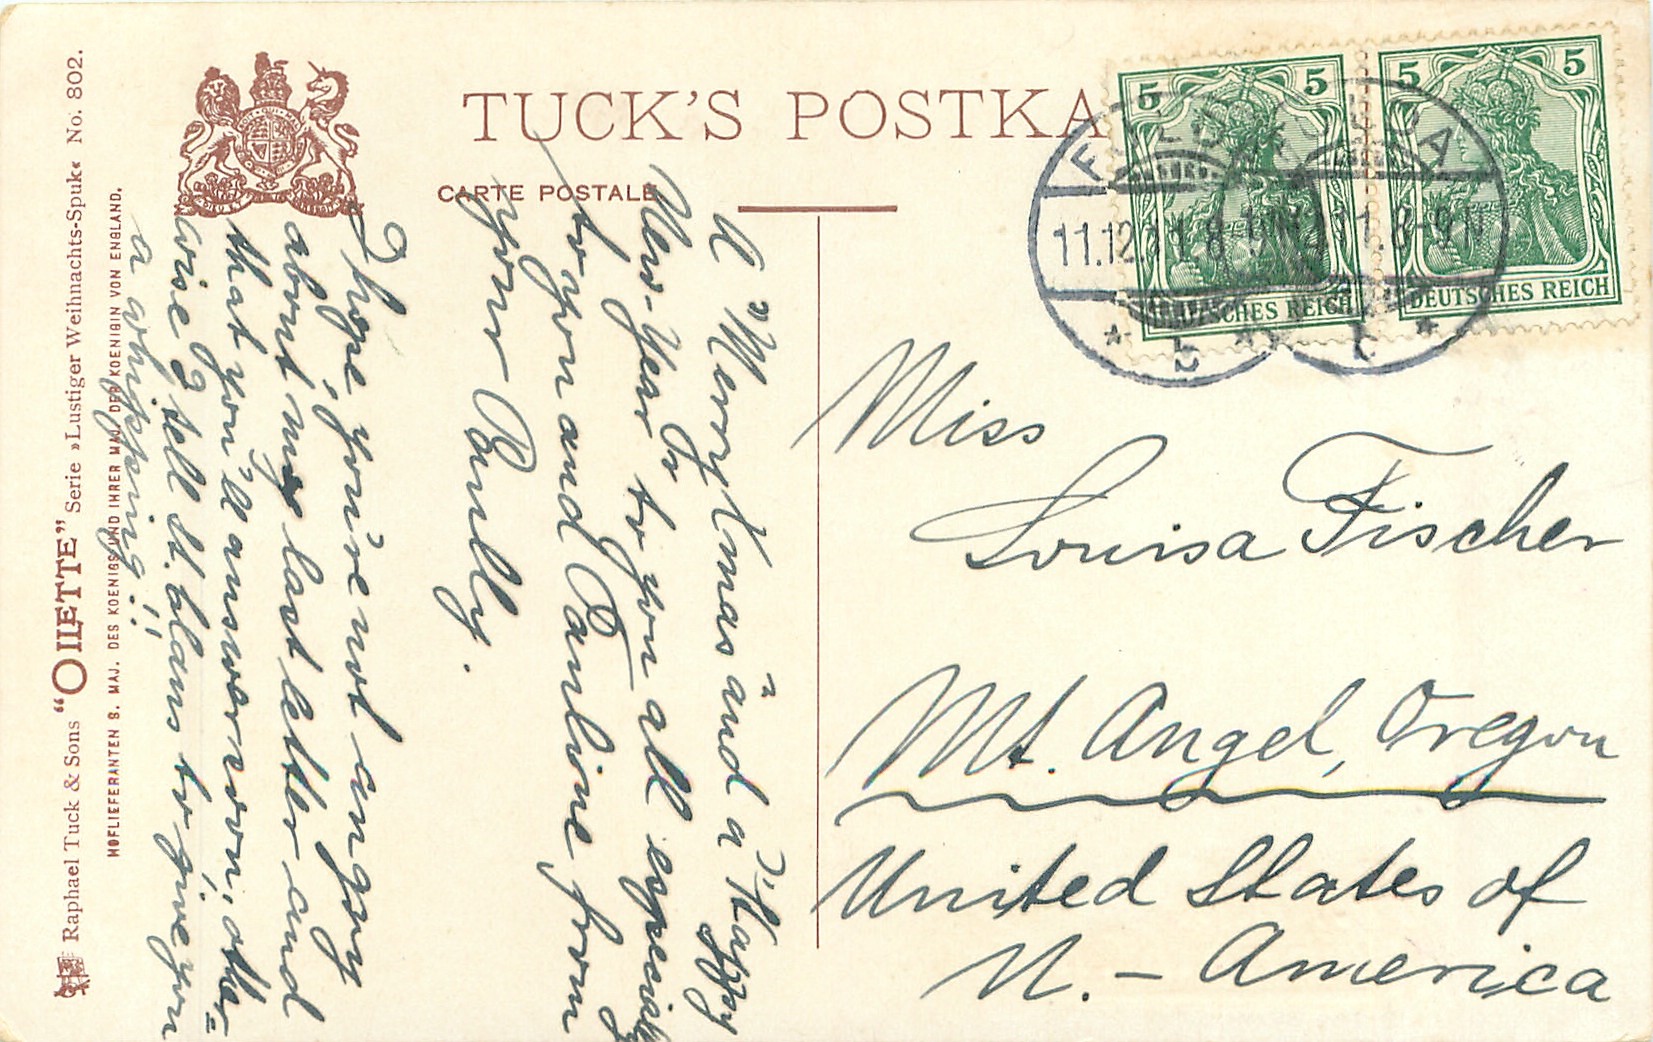 TUCK'S POSTKA
CARTE POSTALE
Raphael Tuck & Sons “OILETTE” Serie »Lustiger Weihnachts-Spuk« No. 802.
HOFLIEFERANTEN S. MAJ. DES KOENIGS UND IHRER MAJ. DER KOENIGIN VON ENGLAND.
5 5
DEUTSCHES REICH
5 5
DEUTSCHES REICH
11.12.11 8-9N
A Merry Xmas and a Happy
New-Year to you all especially
to you and Pauline from
your
I hope, you're not angry
about my last letter and
that you'll answer soon, other=
wise I tell St. Claus to give you
a whipping!!
Miss
Louisa Fischer
Mt. Angel, Oregon
United States of
N. - America